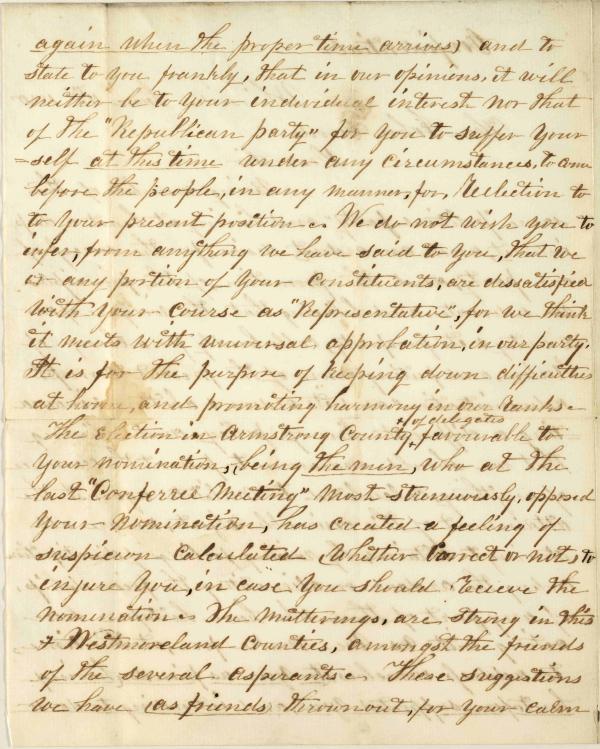 again when the proper time arrives) and to
state to you frankly, that in our opinions, it will
neither be to your individual interest nor that
of the "Republican party" for you to suffer your
=self at this time under any circumstances, to come
before the people, in any manner, for, Reelection to
to your present position. We do not wish you to
infer, from anything we have said to you, that we
or any portion of your constituents, are dissatisfied
with your course as "Representative", for we think
it meets with universal approbation, in our party.
It is for the purpose of keeping down difficulties
at home, and promoting harmony in our ranks.
+ of delegates
The Election in Armstrong County + favourable to
your nomination, being the men, who at the
last "Conferree Meeting" most strenuously, opposed
your nomination, has created a feeling of
suspicion calculated (whether correct or not) to
injure you, in case you should recieve the
nomination. The mutterings, are strong in this
& Westmoreland Counties, amongst the friends
of the several aspirants. These suggestions
we have (as friends) thrown out, for your calm